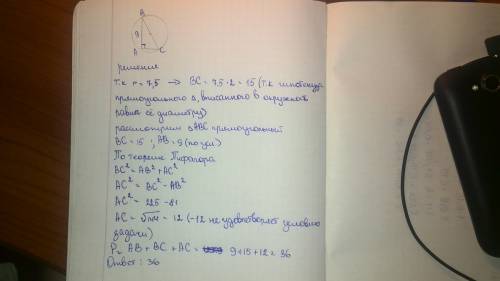 B
9
A
C
решение
т.к r = 7,5 → BC = 7,5 · 2 = 15 (т.к гипотенуза
прямоугольного Δ, вписанного в окружность
равна её диаметру)
рассмотрим ΔABC прямоугольный
BC = 15 ; AB = 9 (по усл)
По теореме Пифагора
BC² = AB² + AC²
AC² = BC² - AB²
AC² = 225 - 81
AC = √144 = 12 (-12 не удовлетворяет условию
задачи)
P = AB + BC + AC = 9 + 15 + 12 = 36
Ответ : 36